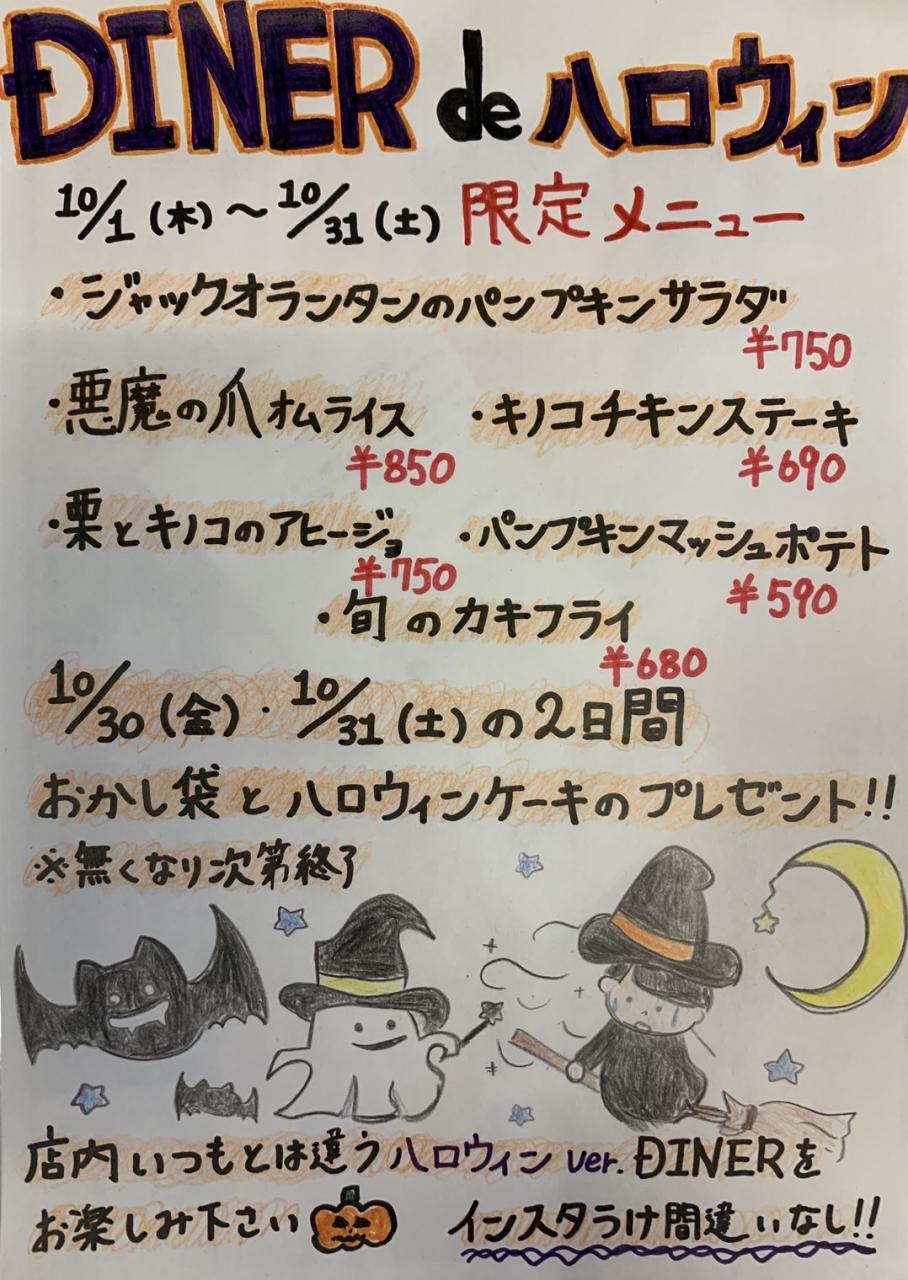 DINER de ハロウィン
10/1(木)〜10/31(土) 限定メニュー
・ジャックオランタンのパンプキンサラダ
¥750
・悪魔の爪オムライス ・キノコチキンステーキ
¥850 ¥690
・栗とキノコのアヒージョ ・パンプキンマッシュポテト
¥750 ¥590
・旬のカキフライ
¥680
10/30(金)・10/31(土)の2日間
おかし袋とハロウィンケーキのプレゼント!!
※無くなり次第終了
店内いつもとは違うハロウィンver.DINERを
お楽しみ下さい インスタうけ間違いなし!!